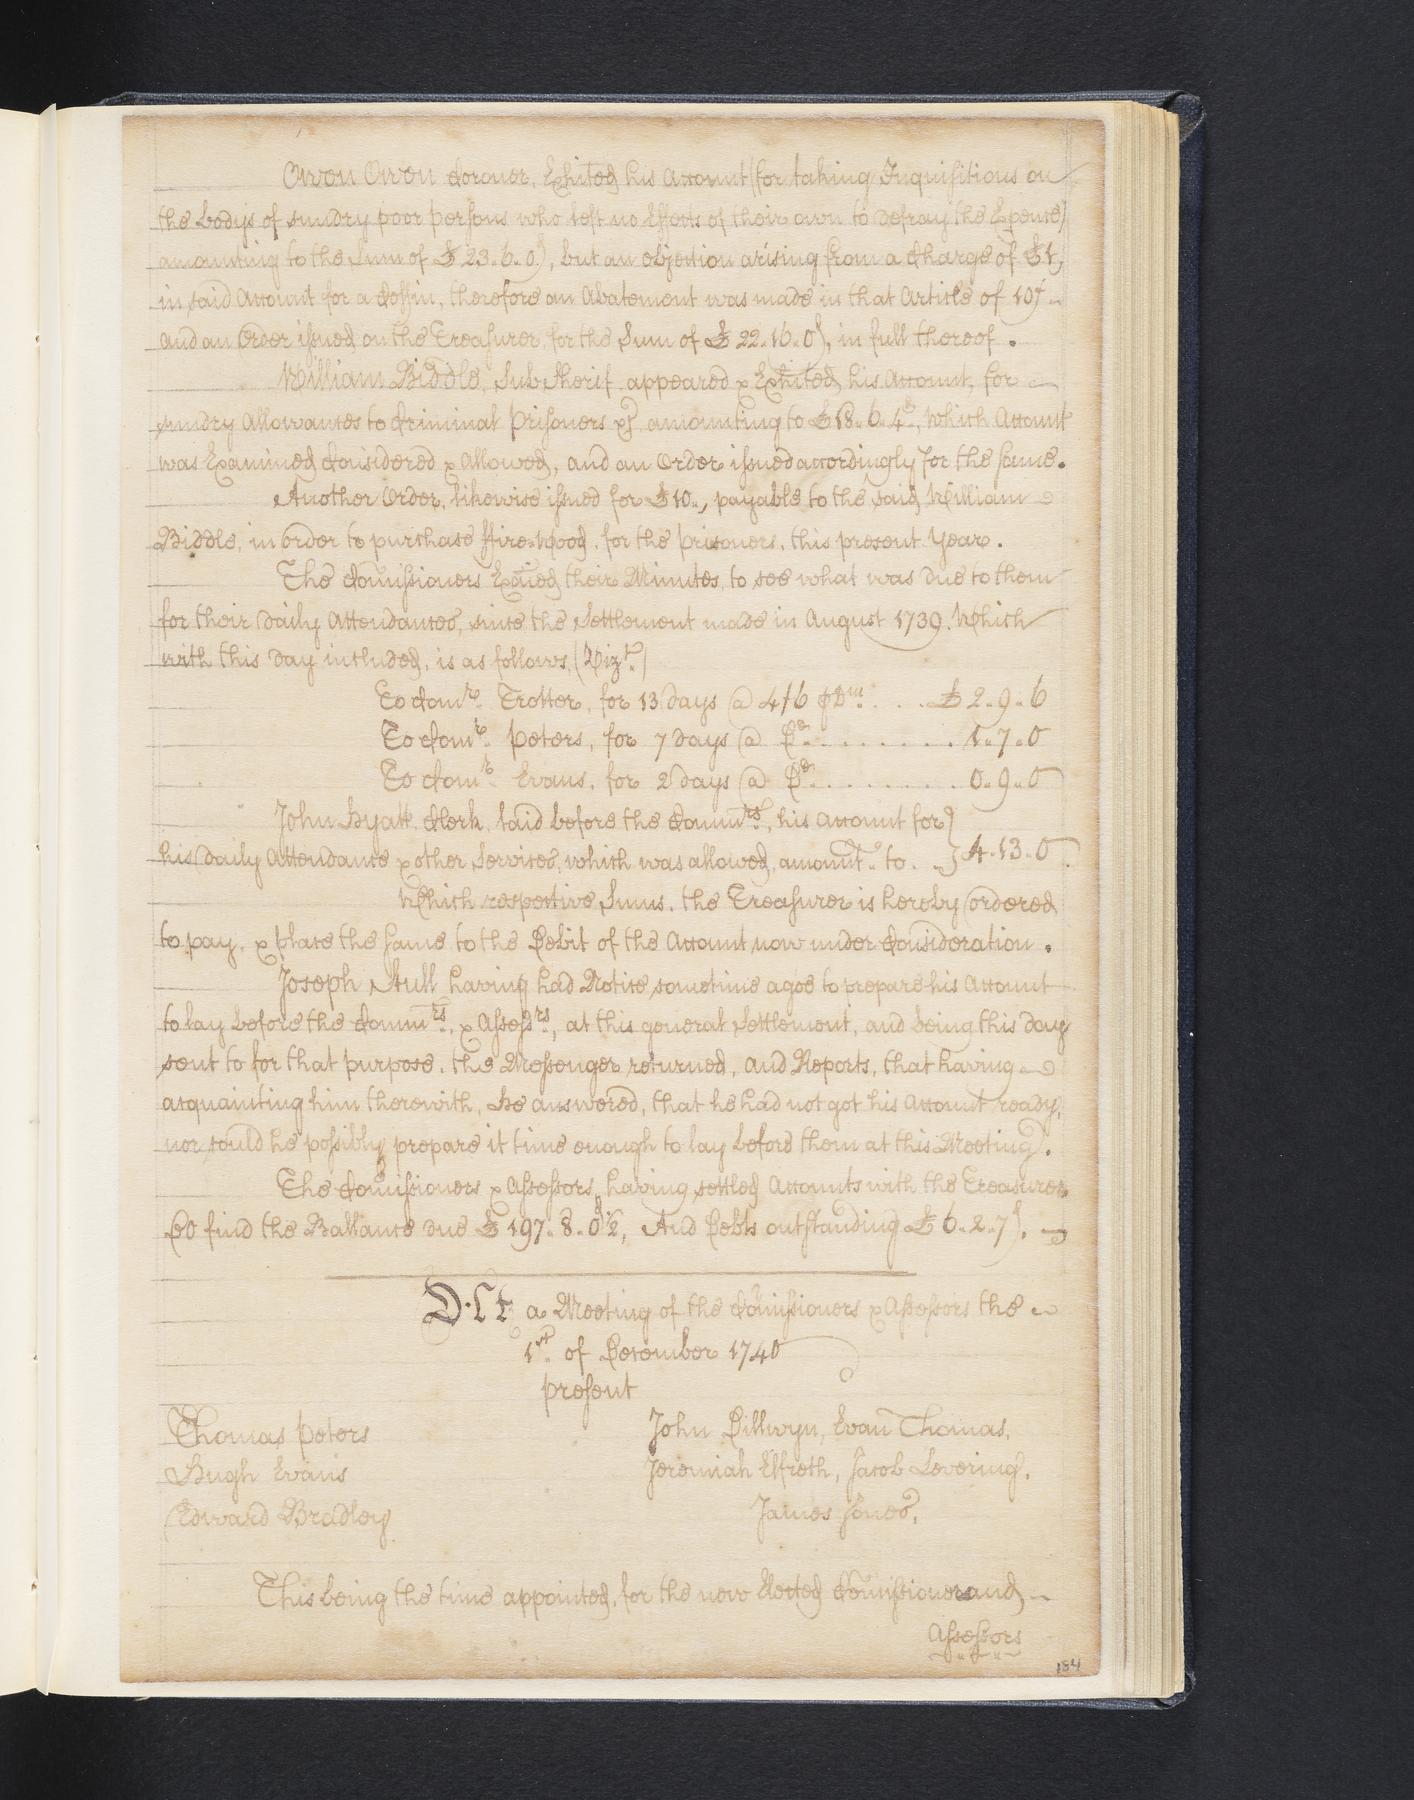 Owen Owen Coroner, Exhited his Account (for taking Inquisitions on
the bodys of sundry poor persons who left no Effects of their own to defray the Expence)
amounting to the Sum of £ 23..6..0), but an objection arising from a Charge of £1,
in said Account for a Coffin, therefore an Abatement was made in that Article of 10/-
and an Order issued on the Treasurer for the Sum of £ 22..16..0), in full thereof.
William Biddle, Sub Sherif appeared & Exhited his Account, for
sundry Allowances to Criminal Prisoners &c amounting to £18..6..4d, Which Account
was Examined Considered & Allowed, and an Order issued accordingly for the same.
Another Order, likewise issued for £10.., payable to the said William
Biddle, in order to purchase ffire-Wood, for the prisoners, this present Year.
The Comissioners Exaied their Minutes, to see what was due to them
for their daily Attendances, since the Settlement made in August 1739. Which
with this day included, is as follows, (Vizt.)
To Comr. Trotter, for 13 days @ 4/6 pDm. . . . £ 2..9..6
To Comr. Peters, for 7 days @ Do. . . . . . . . . 1..7..0
To Comr. Evans, for 2 days @ Do. . . . . . . . . 0..9..0
John Hyatt Clerk, laid before the Commrs., his Account for}
his daily Attendance & other Services, which was allowed, amount.. to. } 4..13..0
Which respective Sums, the Treasurer is hereby ordered
to pay, & place the same to the Debit of the Account now under Consideration.
Joseph Stull having had Notice sometime agoe to prepare his Account
to lay before the Commrs., & Assessrs., at this general Settlement, and being this day
sent to for that purpose, the Messenger returned, and Reports, that having
acquainting him therewith, He answered, that he had not got his Account ready,
nor could he possibly prepare it time enough to lay before them at this Meeting.
The Comissioners & Assessors, having settled Accounts with the Treasurer
Do find the Ballance due £ 197..8..0d½, And Debts outstanding £ 6..2..7d.
At a Meeting of the Comissioners & Assessors the
1st. of December 1740
present
Thomas Peters John Dillwyn, Evan Thomas,
Hugh Evans Jeremiah Elfreth, Jacob Levering,
Edward Bradley James Jones,
This being the time appointed, for the new Elected Comissioners and
Assessors
184